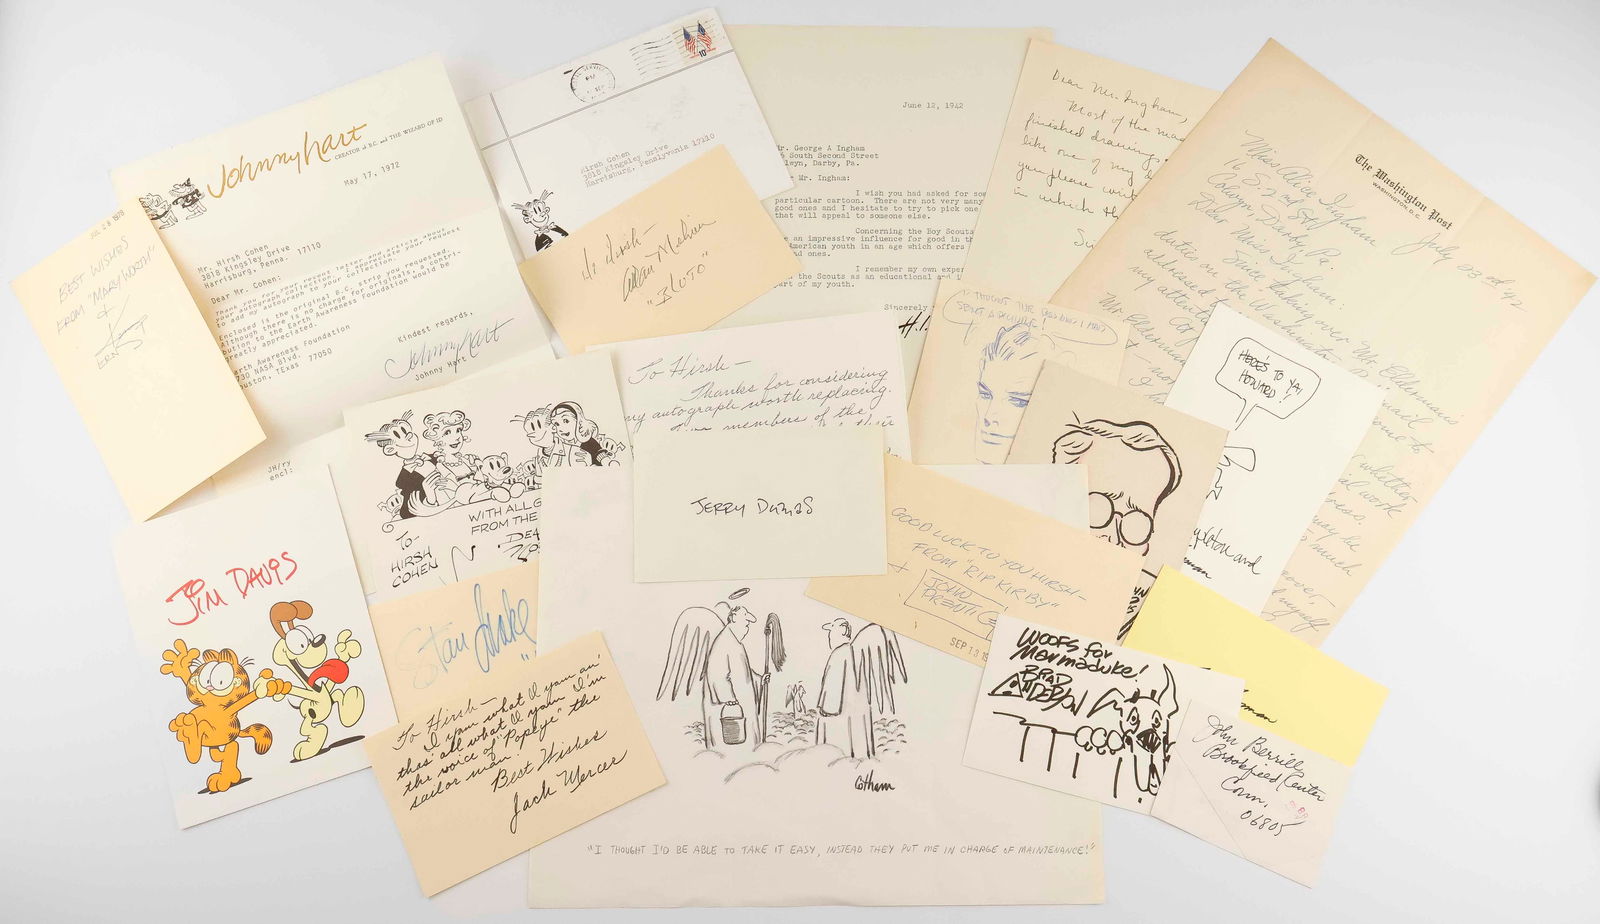 JUL 28 1978
BEST WISHES
FROM "MARY WORTH"
&
ERNST
Johnny hart
CREATOR of B.C. and THE WIZARD OF ID
May 17, 1972
Mr. Hirsh Cohen
3818 Kingsley Drive
Harrisburg, Penna. 17110
Dear Mr. Cohen:
Thank you for your recent letter and article about
your autograph collection. I appreciate your request
to add my autograph to your collection.
Enclosed is the original B.C. strip you requested.
Although there is no charge for originals a contri-
bution to the Earth Awareness Foundation would be
greatly appreciated.
arth Awareness Foundation
730 NASA Blvd.
ouston, TExas 77050
Kindest regards,
Johnny Hart
Johnny Hart
JH/ry
encl:
10
Hirsh Cohen
3818 Kingsley Drive
Harrisburg, Pennsylvania 17110
Hi Hirsh—
"BLUTO"
June 12, 1942
r. George A Ingham
South Second Street
leyn, Darby, Pa.
Mr. Ingham:
I wish you had asked for so
particular cartoon. There are not very many
good ones and I hesitate to try to pick one
that will appeal to someone else.
Concerning the Boy Scouts
an impressive influence for good in th
merican youth in an age which offers
d ones.
I remember my own exper
the Scouts as an educational and
art of my youth.
Sincerely
H.
Dear Mr. Ingham,
Most of the mag
finished drawing
like one of my
you please write
in which th
Su
The Washington Post
WASHINGTON, D.C.
July 23rd 42
Miss Alice Ingham
16 S. 2nd St
Colwyn, Darby Pa.
Dear Miss Ingham:
Since taking over Mr Elderman's
duties on the Washington Post mail
addressed to
my attention
Mr Elderman
whether
work
may be
much
myself
I THOUGHT THE
HERE'S TO YA!
HOWARD!
pleton and
man
To Hirsh—
Thanks for considering
my autograph worth replacing.
members of the
JERRY DUMAS
WITH ALL G
FROM THE
DEA
TO—
HIRSH
COHEN
JIM DAVIS
Stan Drake
GOOD LUCK TO YOU HIRSH—
FROM "RIP KIRBY"
+
JOHN
PRENTICE
SEP 13 19
To Hirsh—
I yam what I yam an'
thas all what I yam I'm
the voice of "Popeye" the
sailor man.
Best Wishes
Jack Mercer
Gotham
"I THOUGHT I'D BE ABLE TO TAKE IT EASY, INSTEAD THEY PUT ME IN CHARGE OF MAINTENANCE!"
WOOFS for
Marmaduke!
BRAD
ANDERSON
man
John Berrill
Brookfield Center
Conn.
06805